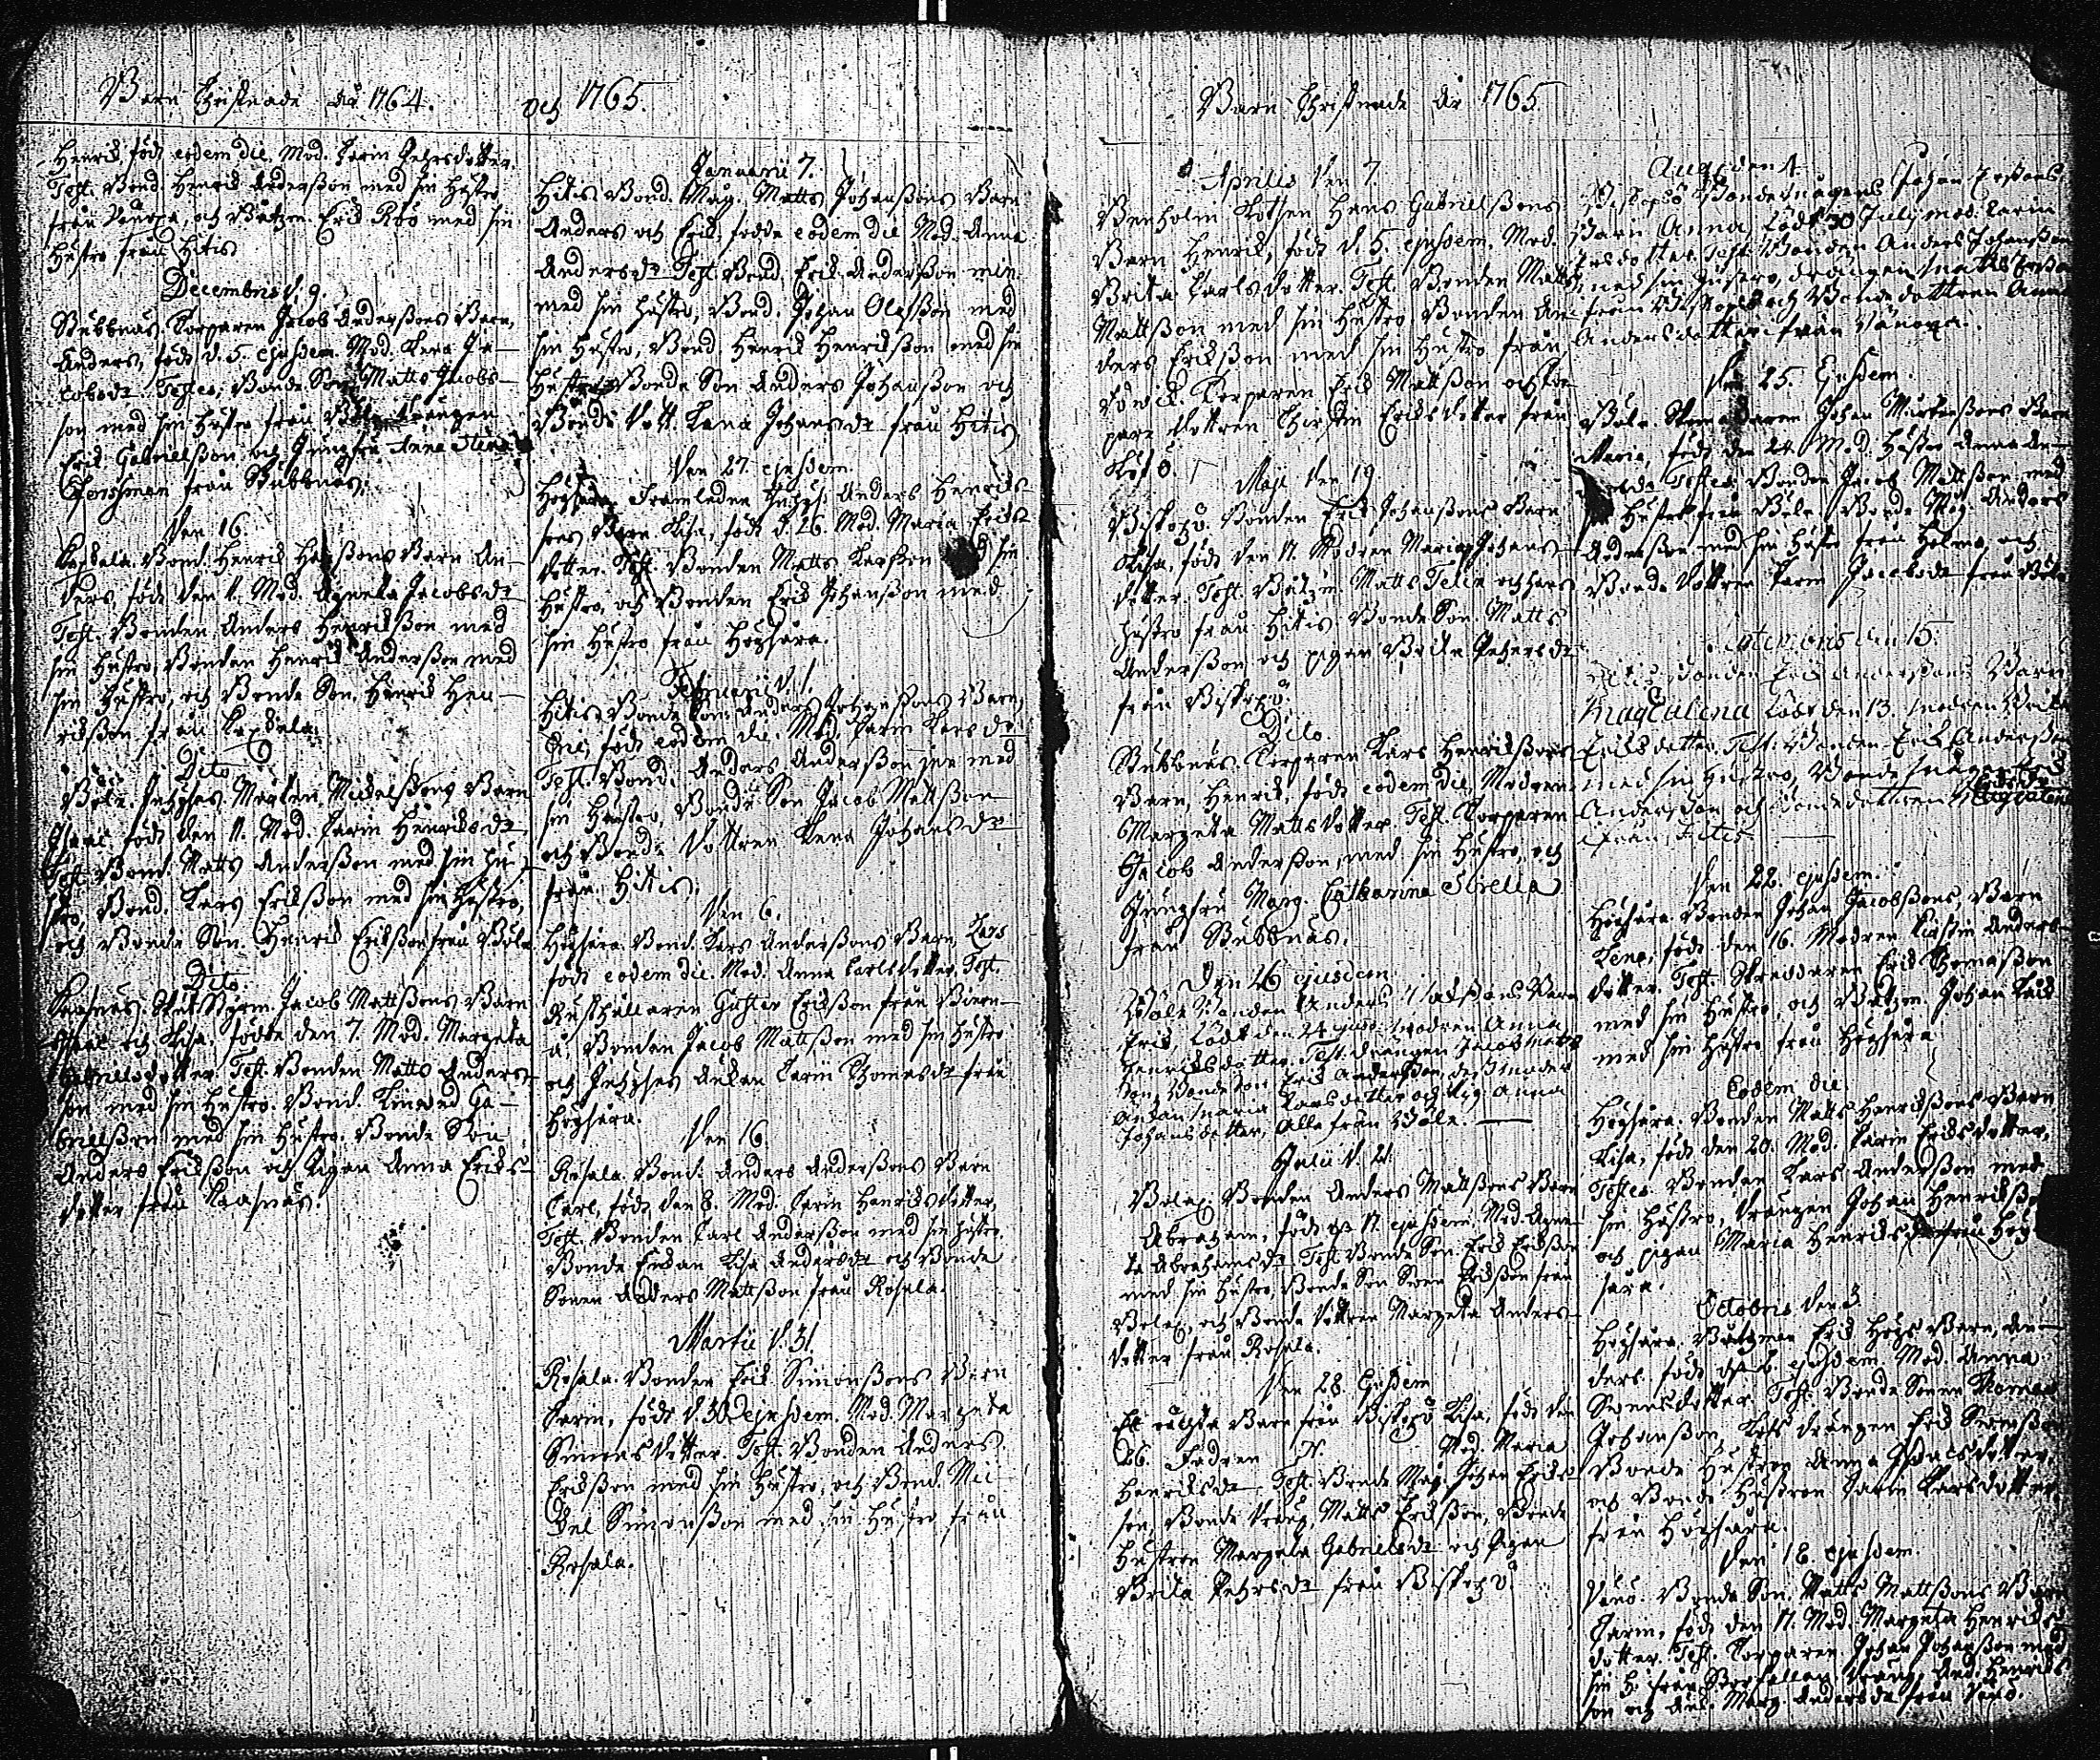 Barn Christnade År 1764.
och 1765.
Henrik, född eodem die, Mod. Carin Pehrsdotter.
Test. Bond. Henrik Andersson med sin Hustro
från Vänoxa, och Båtzm. Erik Roo med sin
Hustro från Hitis.
Decembris d. 9.
Stubbnäs. Torparen Jacob Anderssons Barn,
Anders, född d. 5. ejusdem. Mod. Lena Ja-
cobsdr. Testes, Bonde Son Matts Jacobs-
son med sin Hustro från drängen
Erik Gabrielsson och Jungfru Anna Stina
från Stubbnäs.
Den 16.
Bond. Henrik Barn An-
ders, född den 11. Mod. Agneta Jacobsdr
Test. Bonden Anders Henriksson med
sin Hustro, Bonden Henrik Andersson med
sin Hustro, och Bonde Son. Henrik Hen-
riksson från
Dito
Böle. Inhyses Mickelssons Barn
Isaac född den 11. Mod. Carin Henriksdr.
Test. Bond. Matts Andersson med sin Hu-
stro, Bond. Lars Eriksson med sin Hustro,
och Bonde Son. Henrik Eriksson från Böle
Dito.
Kasnäs. Jacob Mattssons Barn
Isaac och Lisa, födde den 7. Mod. Margeta
Gabrielsdotter. Test. Bonden Matts Anders-
son med sin Hustro. Bond. Ga-
brielsson med sin Hustro. Bonde Son
Anders Eriksson och Pigan Anna Eriks-
dotter från Kasnäs.
Januarii 7.
Hitis Bond. Mag. Matts Johanssons Barn
Anders och Erik, födde eodem die Mod. Anna
Andersdr. Test. Bond. Erik Andersson min.
med sin Hustro, Bond. Johan Olofsson med
sin Hustro, Bond. Henrik Henriksson med sin
Hustro, Bonde Son Anders Johansson och
Bonde Dott. Lena Johansdr från Hitis
Den 27. ejusdem.
Högsåra. Framledne Inhys. Anders Henriks-
sons Barn Lisa, född d. 26. Mod. Maria Eriks-
dotter. Test. Bonden Matts Larsson sin
Hustro, och Bonden Erik Johansson med
sin Hustro från Högsåra.
Februarii d. 1.
Hitis Bonde Son Anders Johanssons Barn,
Eric, född eodem die. Mod. Carin Larsdr
Test. Bond. Anders Andersson jun med
sin Hustro, Bonde Son Jacob Mattsson
och Bonde Dottren Lena Johansdr
från Hitis.
Den 6.
Högsåra. Bond. Lars Anderssons Barn, Lars
född eodem die. Mod. Anna Carlsdotter. Test.
Rusthållaren Gustav Eriksson från Biern-
ö, Bonden Jacob Mattsson med sin Hustro
och Inhyses Änkan Carin Thomasdr från
Högsåra.
Den 16
Rosala. Bond. Anders Anderssons Barn
Carl, född den 8. Mod. Carin Henriksdotter,
Test. Bonden Carl Andersson med sin Hustro.
Bonde Enkan Lisa Andersdr och Bonde
Sonen Anders Mattsson från Rosala.
Martii d. 31.
Rosala. Bonden Erik Simonssons Barn
Carin, född d. 30 ejusdem. Mod. Margeta
Simonsdotter. Test. Bonden Anders
Eriksson med sin Hustro, och Bond. Mic-
kel Simonsson med sin Hustro från
Rosala.
Barn Christnade År 1765.
Aprilis den 7.
Benholm Lotsen Hans Gabrielssons
Barn Henrik, född d. 5. ejusdem. Mod.
Brita Carlsdotter. Test. Bonden Matts
Mattsson med sin Hustro Bonden An-
ders Eriksson med sin Hustro från
Torparen Erik Mattsson och Tor-
pare dottren Chirstin Eriksdotter från
Maji den 19
Biskopsö. Bonden Erik Johanssons Barn
Lisa, född den 17. Modren Maria Johans-
dotter. Test. Båtzm. Matts Telin och hans
Hustro från Hitis Bonde Son. Matts
Andersson och pigan Brita Pehrsdr
från Biskopsö.
Dito.
Stubbnäs. Torparen Lars Henrikssons
Barn, Henrik, född eodem die, Modren
Margeta Mattsdotter. Test. Torparen
Jacob Andersson, med sin Hustro, och
Jungfru Marg. Catharina Strella
från Stubbnäs.
Den 26 ejusdem
Böle Bonden Anders Barn
Erik, född den 24 ejusd. modren Anna
Henriksdotter. Test. drängen Jacob Matts-
son, Bonde son Erik Andersson,
Änkan Maria Larsdotter och Pig. Anna
Johansdotter, Alla från Böle.
Julii d. 21.
Bolax. Bonden Anders Mattssons Barn
Abraham, född d. 17. ejusdem, Mod. Agne-
ta Abrahamsdr Test Bonde Son. Erik Eriksson
med sin Hustro, Bonde Son Sven Eriksson från
Bolax, och Bonde dottren Margeta Anders-
dotter från Rosala.
Den 28. Ejusdem
Ett oächta Barn från Biskopsö Lisa, född den
26. Fadren N. Mod. Maria
Henriksdr. Test. Bonde Mag. Johan Eriks-
son, Bonde dräng. Matts Eriksson, Bonde
Hustron Margeta Gabrielsdr och Pigan
Brita Pehrsdr från Biskopsö.
Aug. den 4.
Biskopsö Bondemågens Johan Erssons
Barn Anna, född 30 July mod. Carin
Ersdotter. Test. Bonden Anders Johansson
med sin hustro, drängen Matts Ersson
från Biskopsö och Bonde dottren Anna
Andersdotter från Vänoxa.
Den 25. Ejusdem.
Böle. Johan Barn
Maria, född den 24. Mod. Hustro Anna An-
dersdr. Testes Bonden Jacob Mattsson med
sin Hustro från Böle Bonde Mag. Anders
Andersson med sin Hustro från Holma, och
Bonde Dottren Carin Jacobsdr från Böle
Septembris den 15.
Hitis Bonden Erik Anderssons Barn
Magdalena född den 13. modren Brita
Eriksdotter. Test: Bonden Erik Andersson
med sin hustro, Bonde mågen
Andersson och Bonde dottren Magdalena
Ersdr
från Hitis
Den 22. ejusdem.
Högsåra. Bonden Johan Jacobssons Barn
Lena, född den 16. Modren Kirstin Anders-
dotter. Test. Skreddaren Erik Thomasson
med sin Hustro, och Båtzm. Johan
med sin Hustro från Högsåra.
Eodem die
Högsåra. Bonden Matts Henrikssons Barn
Lisa, född den 20. Mod. Carin Eriksdotter,
Testes. Bonden Lars Andersson med
sin Hustro, drängen Johan Henriksson
och pigan Maria Henriksdr från Hög-
såra.
Octobris den 3.
Högsåra. Båtzman Erik Högs Barn, An-
ders, född d. ejusdem Mod. Anna
Svensdotter. Test. Bonde Sonen Thomas
Johansson, Lots drängen Erik Svensson
Bonde Hustron Anna Isaacsdotter,
och Bonde Hustron Carin Larsdotter,
från Högsåra.
Den 18. ejusdem.
Vänö. Bonde Son. Matts Mattssons Barn
Carin, född den 17. Mod. Margeta Henriks-
dotter. Test. Torparen Johan Johansson med
sin H. från dräng. And. Henriks-
son och Marg. Andersdr från Vänö.